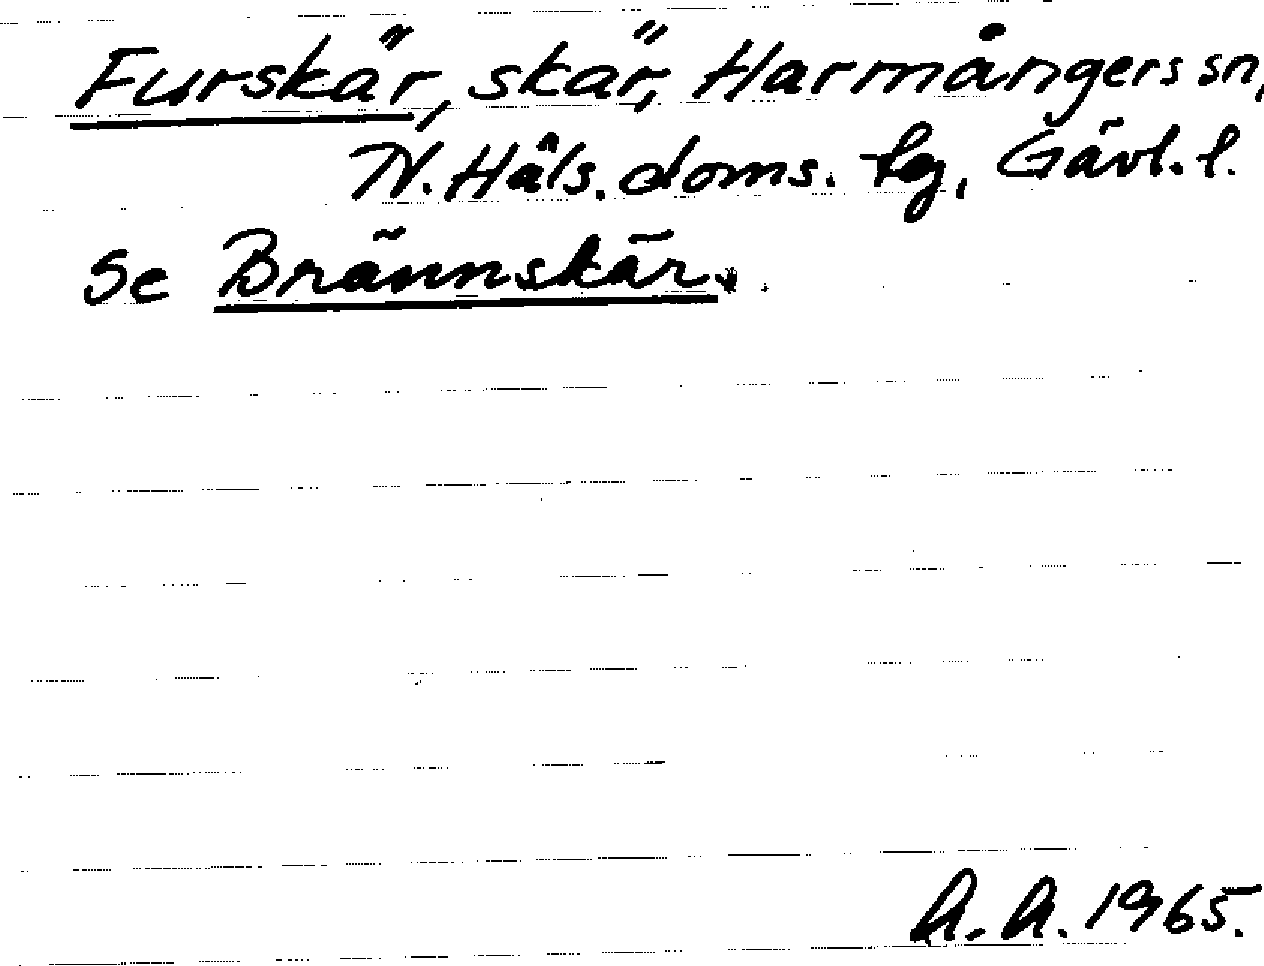 Furskär, skär, Harmångers sn,
N. Häls. doms. tg, Gävl. l.
Se Brännskär.
A. A. 1965.